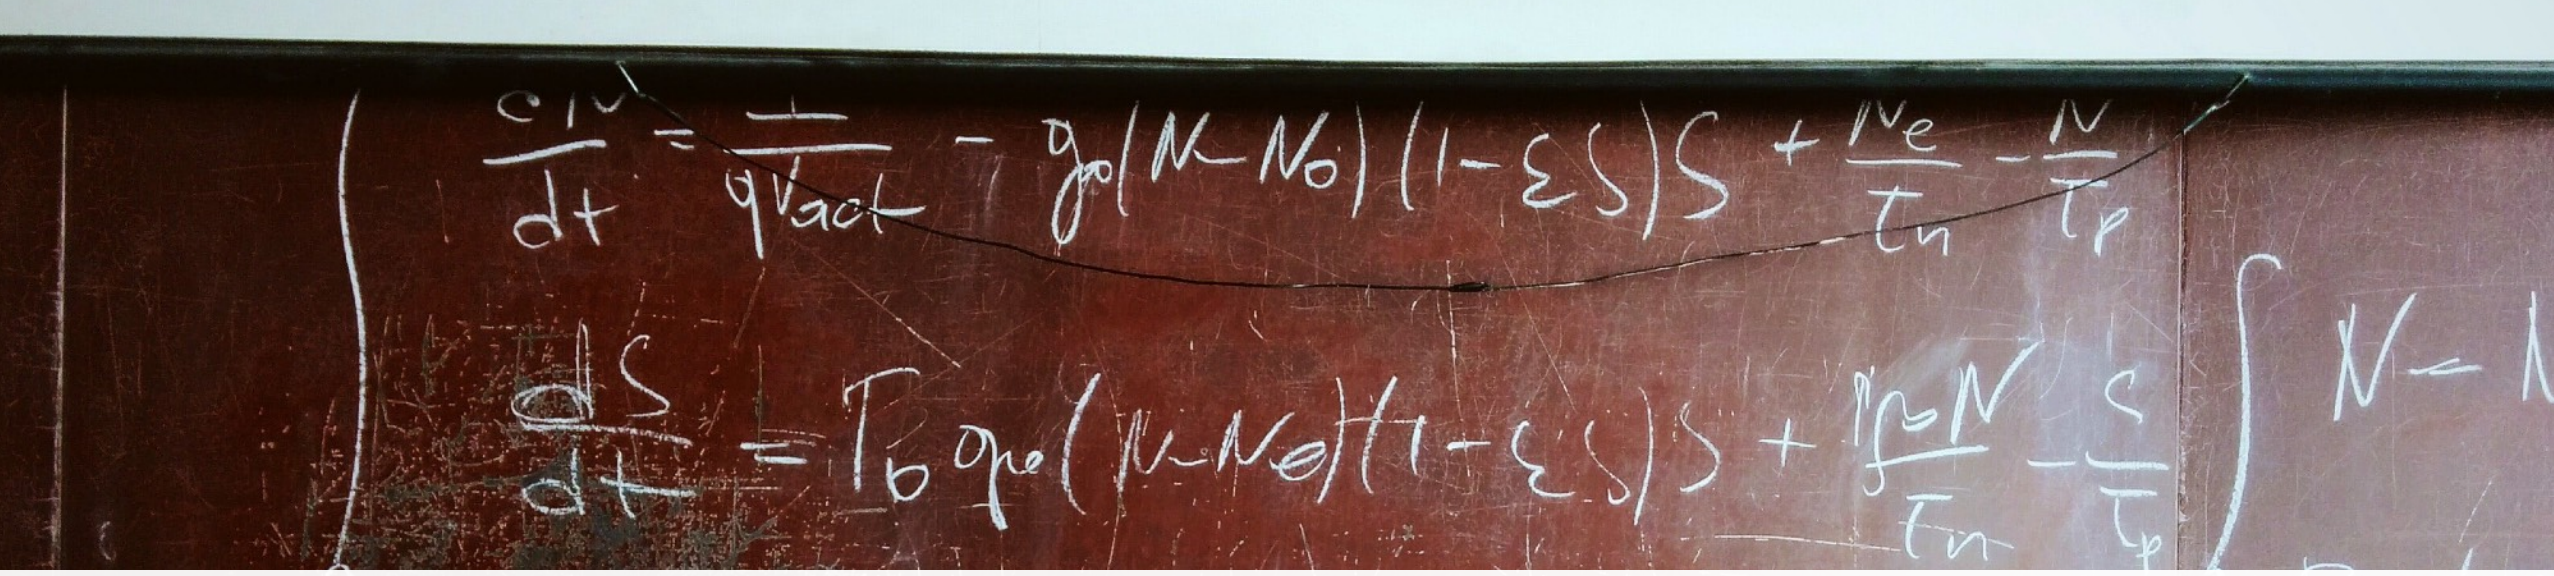 dN/dt = I/qVact - g₀(N-N₀)(1-εS)S + Ne/τn - N/τp
dS/dt = Γ₀g₀(N-N₀)(1-εS)S + ΓβN/τn - S/τp
N -